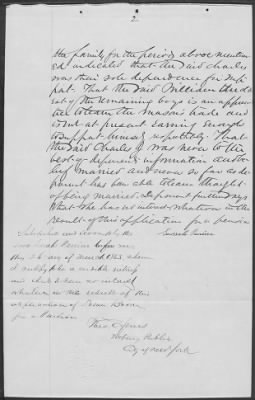 2
the family for the periods above mention
ed indicated that the said Charles
was their sole dependence for sup
port. That the said William the old
est of the remaining boys is an appren
tice to learn the Masons trade and
is not at present earning enough
to support himself respectably. That
the said Charles was never to the
best of deponents information and be
lief married and never so far as de
ponent has been able to learn thought
of being married. Deponent further says
that she has no interest whatever in the
result of this application for a pension
Subscribed and sworn by the
before me
this 26 day of March 1863 whom
I certify to be a credible
and that I have no interest
whatever in the result of this
application of
for a Pension
Notary Public
City of New York